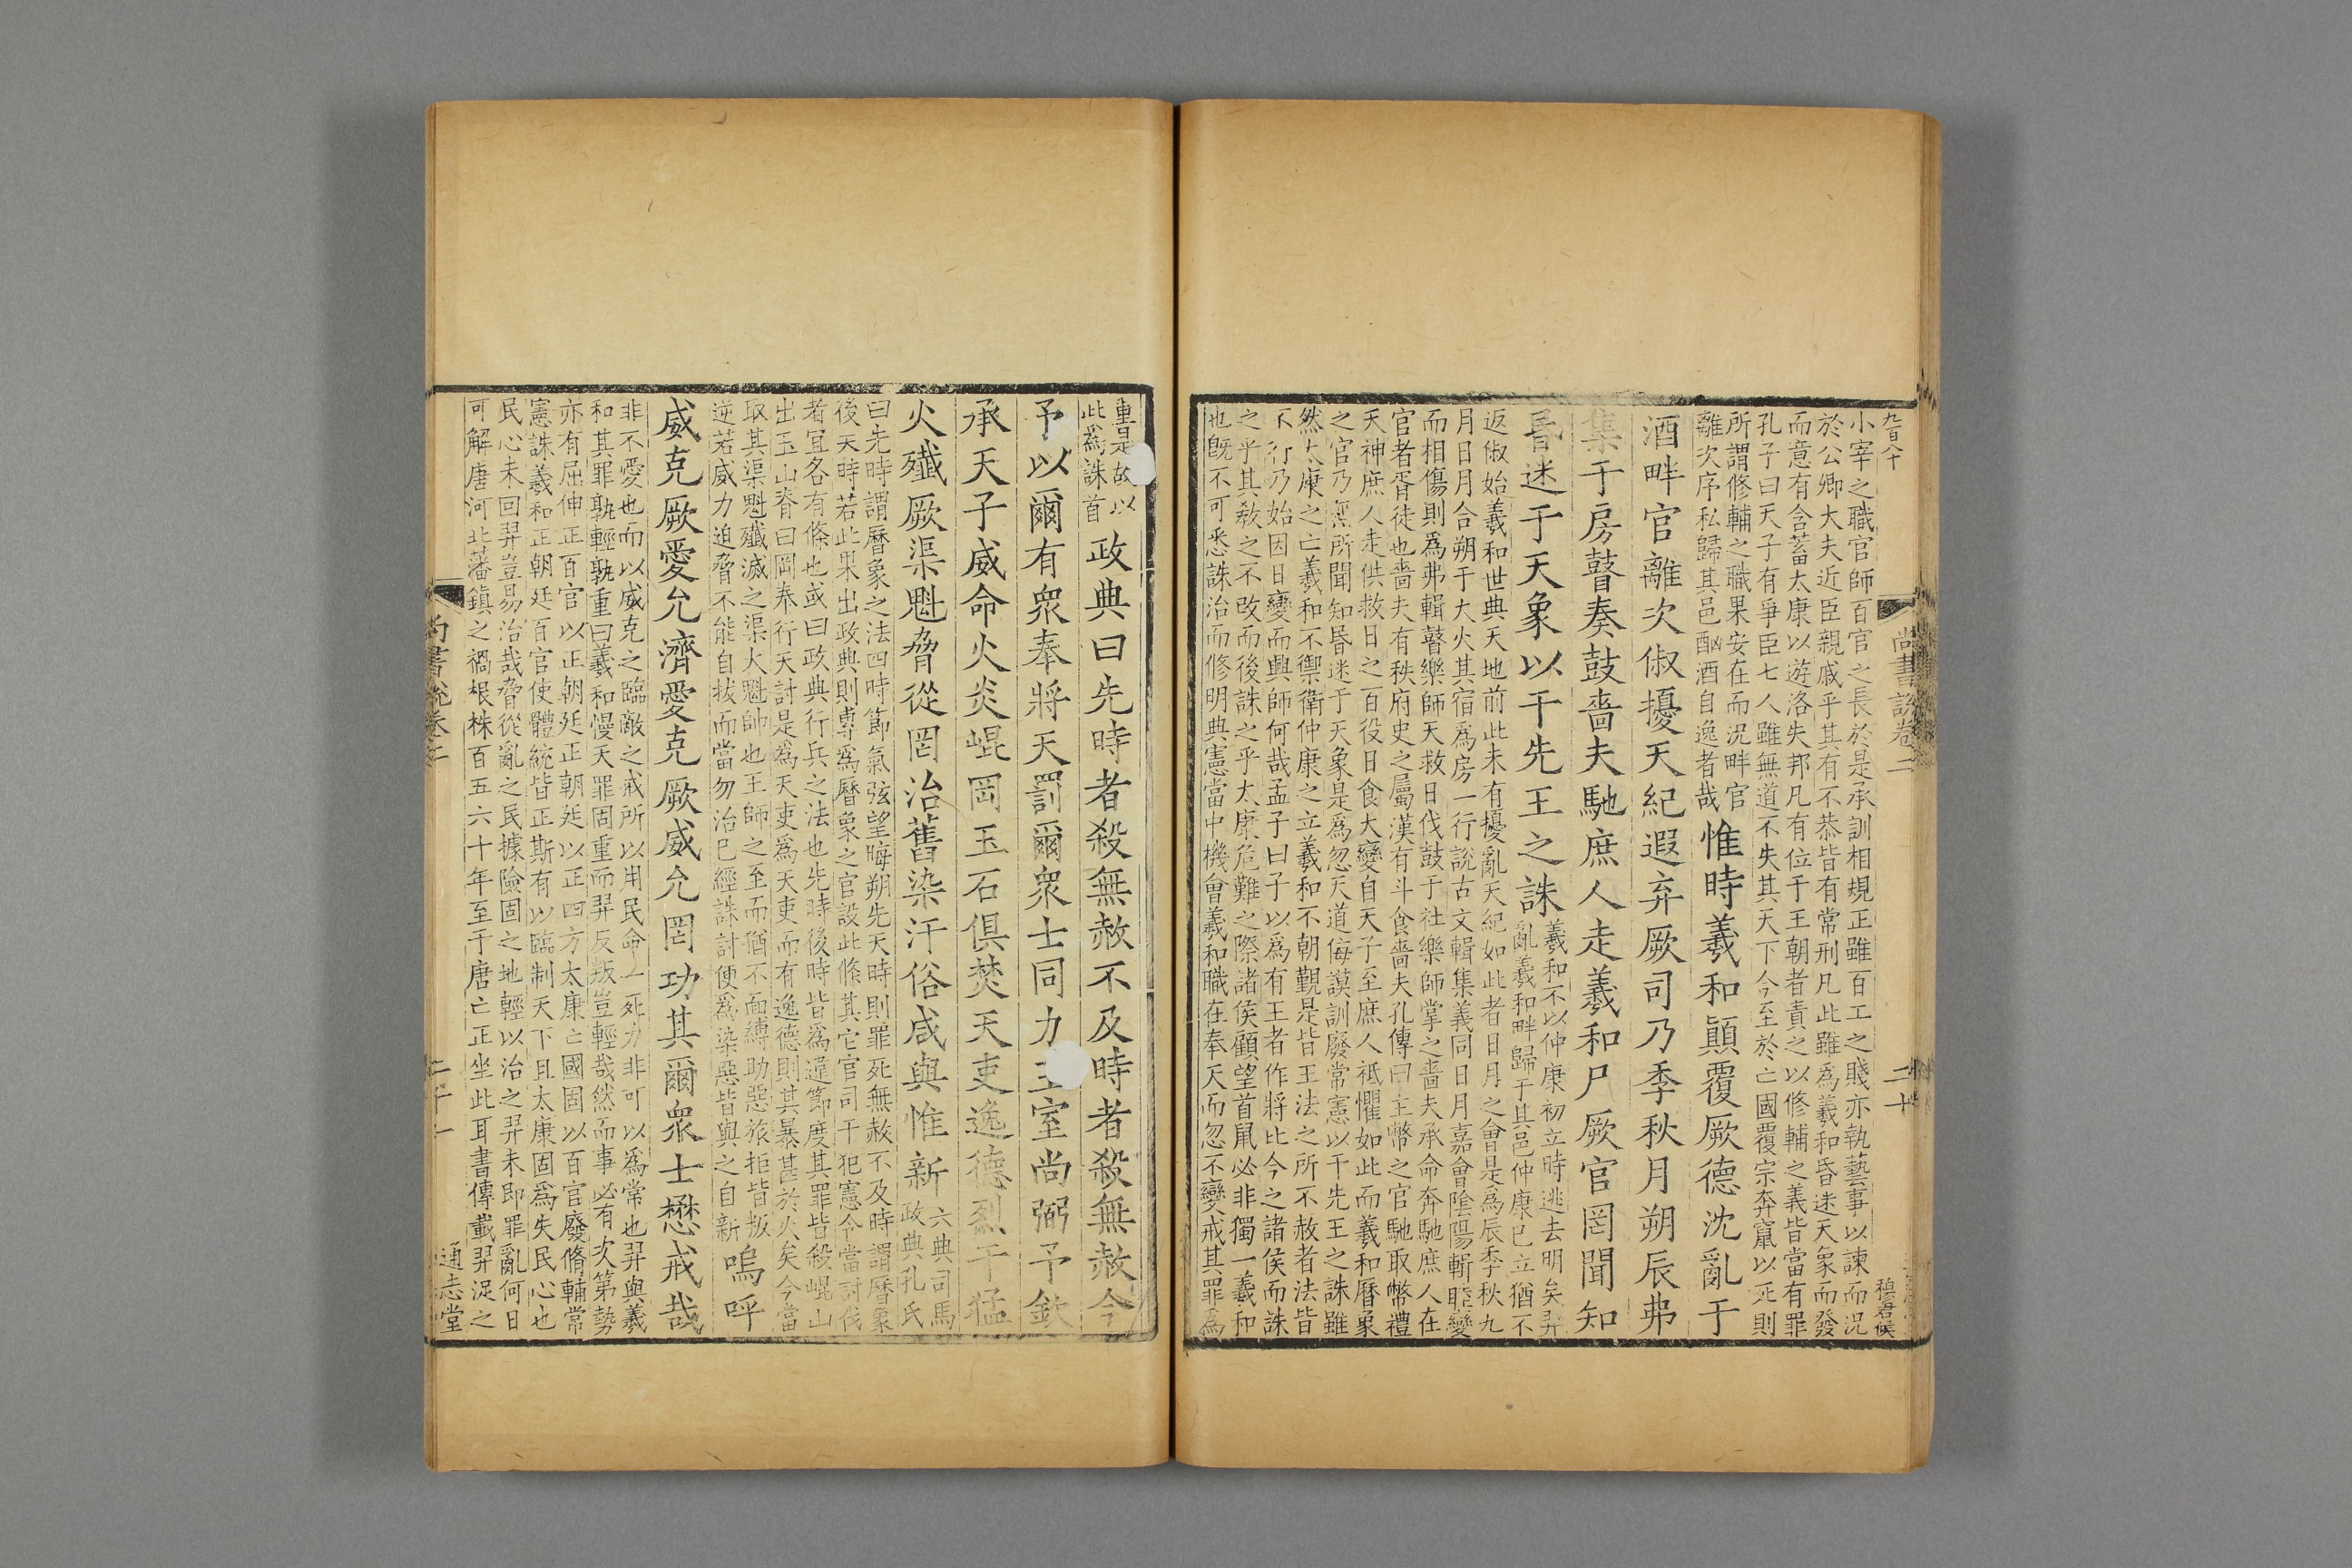 九百八十
尚書説卷二
二十
穆君候
小宰之職官師百官之長於是承訓相規正雖百工之賤亦執藝事以諫而況
於公卿大夫近臣親戚乎其有不恭皆有常刑凡此雖爲羲和昏迷天象而發
而意有含蓄太康以遊洛失邦凡有位于王朝者責之以修輔之義皆當有罪
孔子曰天子有爭臣七人雖無道不失其天下今至於亡國覆宗奔竄以死則
所謂修輔之職果安在而況畔官
離次序私歸其邑酗酒自逸者哉
惟時羲和顚覆厥德沈亂于
酒畔官離次俶擾天紀遐弃厥司乃季秋月朔辰弗
集于房瞽奏鼓嗇夫馳庶人走羲和尸厥官罔聞知
昏迷于天象以干先王之誅
羲和不以仲康初立時逃去明矣羿
亂羲和畔歸于其邑仲康已立猶不
返俶始羲和世典天地前此未有擾亂天紀如此者日月之會是爲辰季秋九
月日月合朔于大火其宿爲房一行說古文輯集義同日月嘉會陰陽輯睦變
而相傷則爲弗輯瞽樂師天救日伐鼓于社樂師掌之嗇夫承命奔馳庶人在
官者胥徒也嗇夫有秩府史之屬漢有斗食嗇夫孔傳曰主幣之官馳取幣禮
天神庶人走供救日之百役日食大變自天子至庶人祗懼如此而羲和曆象
之官乃無所聞知昏迷于天象是爲忽天道侮謨訓廢常憲以干先王之誅雖
然太康之亡羲和不禦衛仲康之立羲和不朝覲是皆王法之所不赦者法皆
不行乃始因日變而興師何哉孟子曰子以爲有王者作將比今之諸侯而誅
之乎其敎之不改而後誅之乎太康危難之際諸侯顧望首鼠必非獨一羲和
也旣不可悉誅治而修明典憲當中機會羲和職在奉天而忽不變戒其罪爲
重是故以
此爲誅首
政典曰先時者殺無赦不及時者殺無赦今
予以爾有衆奉將天罰爾衆士同力王室尚弼予欽
承天子威命火炎崐岡玉石俱焚天吏逸德烈于猛
火殲厥渠魁脅從罔治舊染汙俗咸與惟新
六典司馬
政典孔氏
曰先時謂曆象之法四時節氣弦望晦朔先天時則罪死無赦不及時謂曆象
後天時若此果出政典則專爲曆象之官設此條其它官司干犯憲令當討伐
者宜各有條也或曰政典行兵之法也先時後時皆爲違節度其罪皆殺崐山
出玉山脊曰岡奉行天討是爲天吏爲天吏而有逸德則其暴甚於火矣今當
取其渠魁殲滅之渠大魁帥也王師之至而猶不面縛助惡旅拒皆叛
逆若威力迫脅不能自拔而當勿治已經誅討便爲染惡皆與之自新
嗚呼
威克厥愛允濟愛克厥威允罔功其爾衆士懋戒哉
非不愛也而以威克之臨敵之戒所以用民命一死力非可以爲常也羿與羲
和其罪孰輕孰重曰羲和慢天罪固重而羿反叛豈輕哉然而事必有次第勢
亦有屈伸正百官以正朝廷正朝廷以正四方太康亡國固以百官廢脩輔常
憲誅羲和正朝廷百官使體統皆正斯有以臨制天下且太康固爲失民心也
民心未回羿豈易治哉脅從亂之民據險固之地輕以治之羿未即罪亂何日
可解唐河北藩鎭之禍根株百五六十年至于唐亡正坐此耳書傳載羿浞之
尚書説卷二
二十一
通志堂